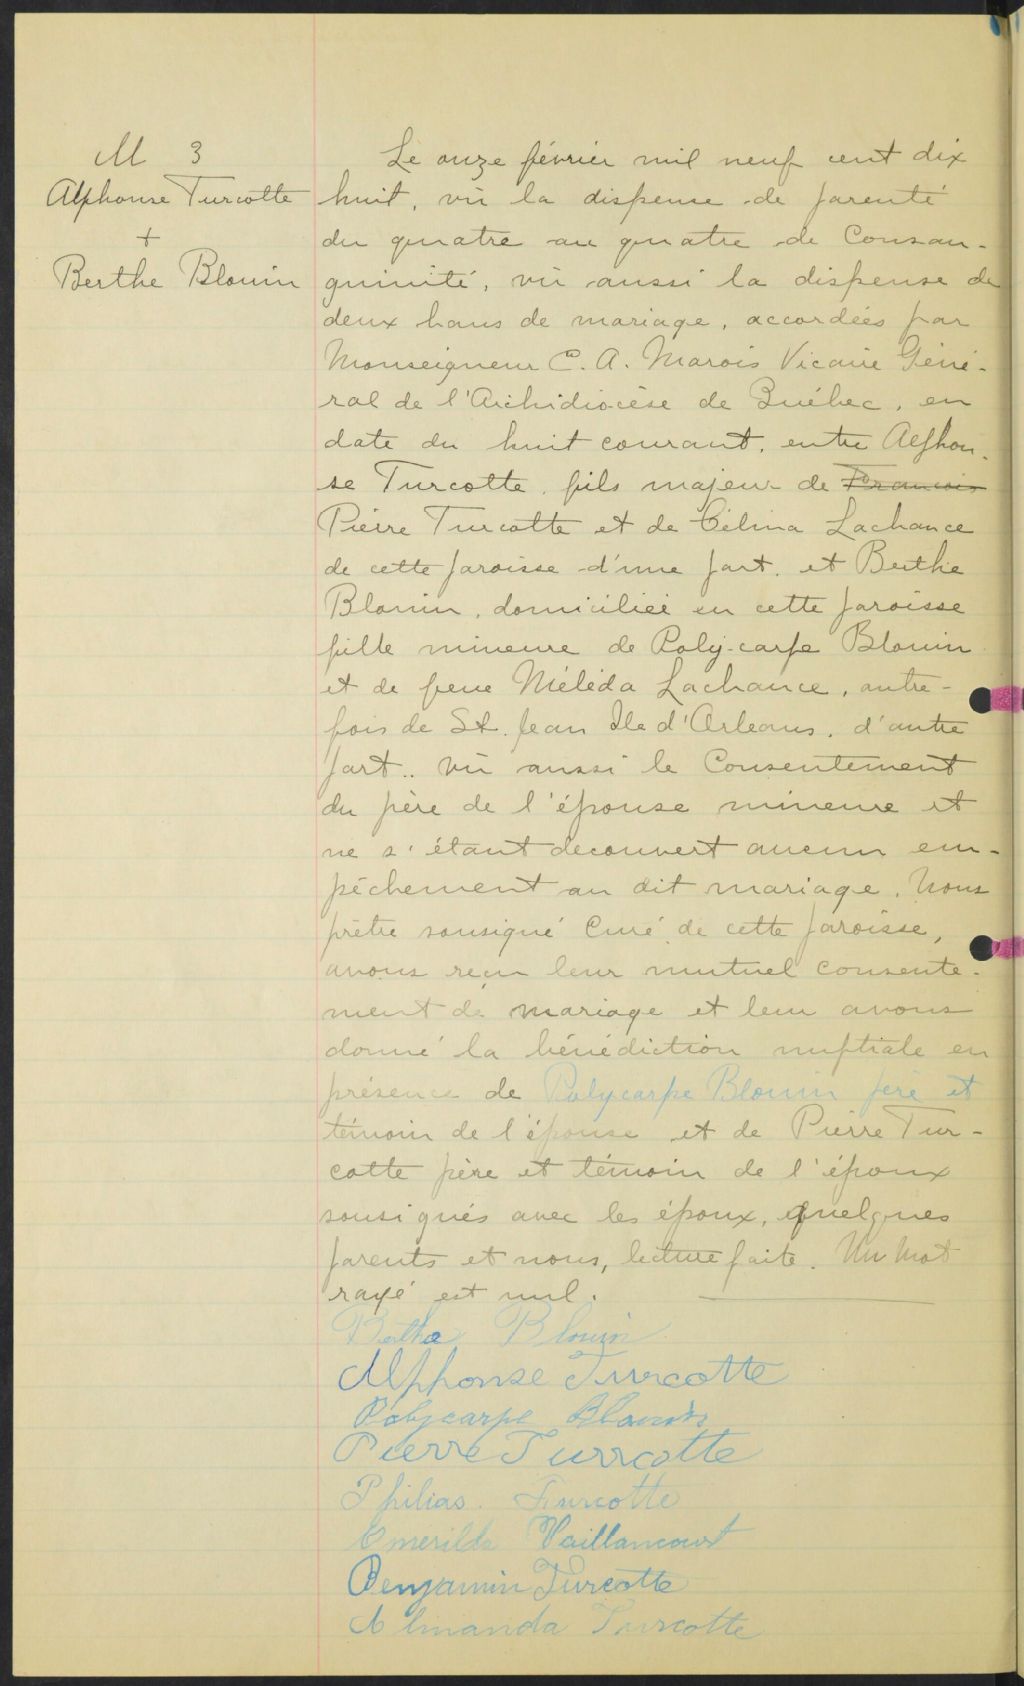 M 3
Alphonse Turcotte
+
Berthe Blouin
Le onze février mil neuf cent dix
huit, vu la dispense de parenté
du quatre au quatre de Consan-
guinité, vu aussi la dispense de
deux bans de mariage, accordées par
Monseigneur C. A. Marois Vicaire Géné-
ral de l'Archidiocèse de Québec, en
date du huit courant, entre Alphon-
se Turcotte, fils majeur de François
Pierre Turcotte et de Célina Lachance
de cette paroisse d'une part, et Berthe
Blouin, domiciliée en cette paroisse
fille mineure de Poly-carpe Blouin
et de feue Méléda Lachance, autre-
fois de St. Jean Ile d'Orleans, d'autre
part.. vu aussi le Consentement
du père de l'épouse mineure et
ne s'étant decouvert aucun em-
pêchement au dit mariage. Nous
prêtre sousigné Curé de cette paroisse,
avons reçu leur mutuel consente-
ment de mariage et leur avons
donné la bénédiction nuptiale en
présence de Polycarpe Blouin père et
témoin de l'épouse et de Pierre Tur-
cotte père et témoin de l'époux
sousignés avec les époux, quelques
parents et nous, lecture faite. Un mot
rayé est nul.
Berthe Blouin
Alphonse Turcotte
Polycarpe Blouin
Pierre Turrcotte
Philias. Turcotte
Emerilda Vaillancourt
Benjamin Turcotte
Almanda Turcotte